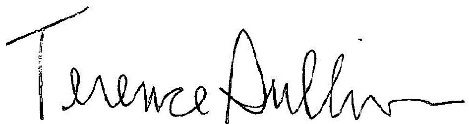 Terence Sullivan